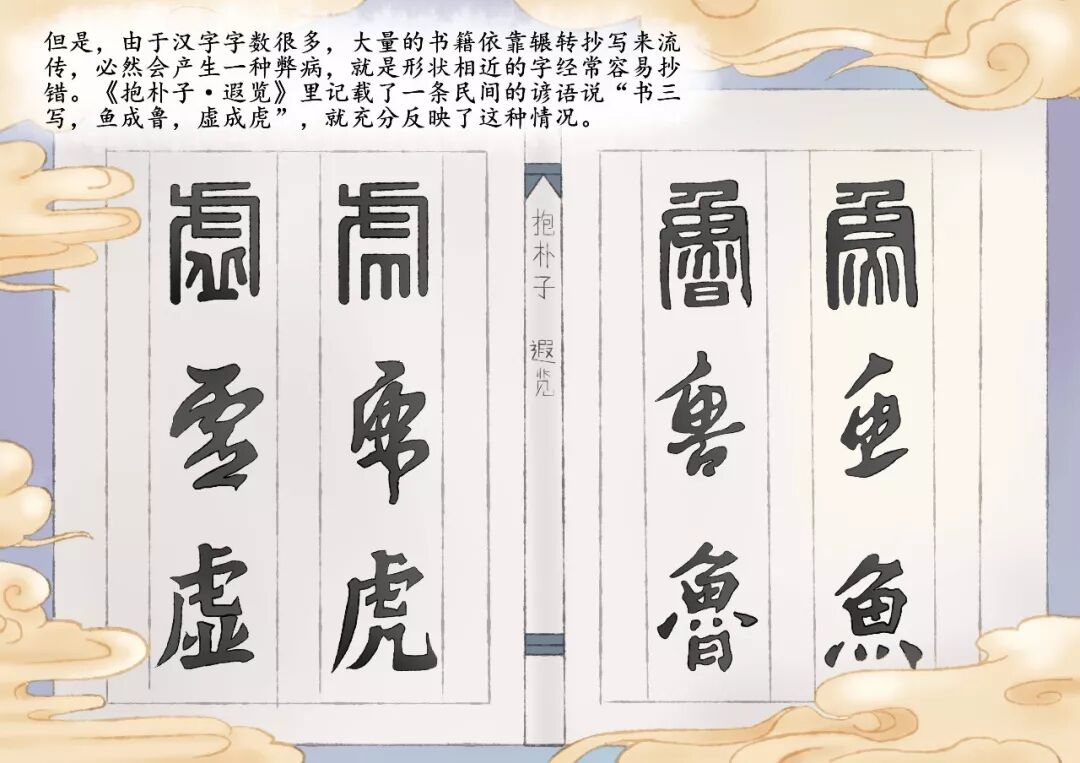 但是，由于汉字字数很多，大量的书籍依靠辗转抄写来流
传，必然会产生一种弊病，就是形状相近的字经常容易抄
错。《抱朴子·遐览》里记载了一条民间的谚语说“书三
写，鱼成鲁，虚成虎”，就充分反映了这种情况。
魚
魚
魚
魯
魯
魯
抱朴子 遐览
虎
虎
虎
虛
虚
虚